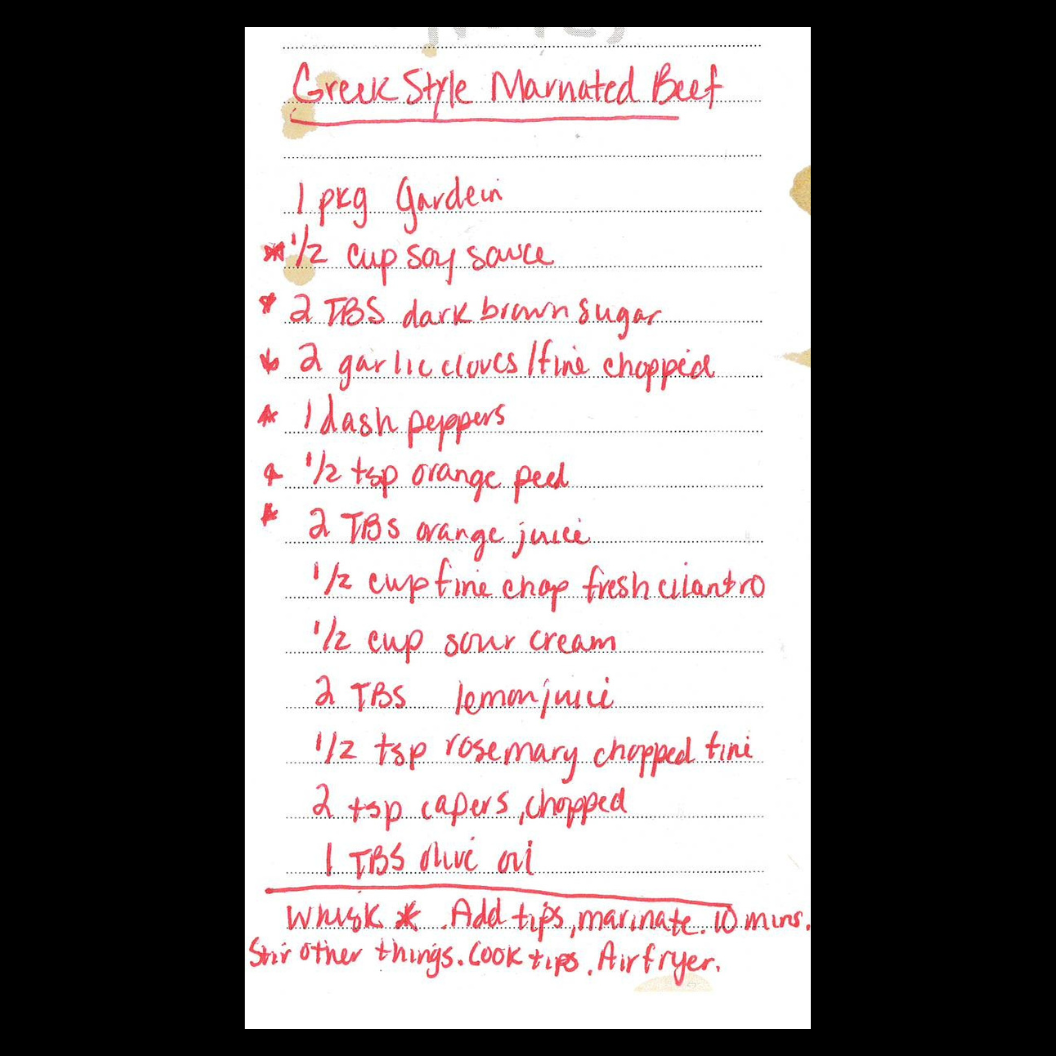 Greek Style Marnated Beef
1 pkg Gardein
* 1/2 cup soy sauce
* 2 TBS dark brown sugar
* 2 garlic cloves / fine chopped
* 1 dash peppers
* 1/2 tsp orange peel
* 2 TBS orange juice
1/2 cup fine chop fresh cilantro
1/2 cup sour cream
2 TBS lemon juice
1/2 tsp rosemary chopped fine
2 tsp capers, chopped
1 TBS olive oil
Whisk *. Add tips, marinate. 10 mins.
Stir other things. Cook tips. Airfryer.